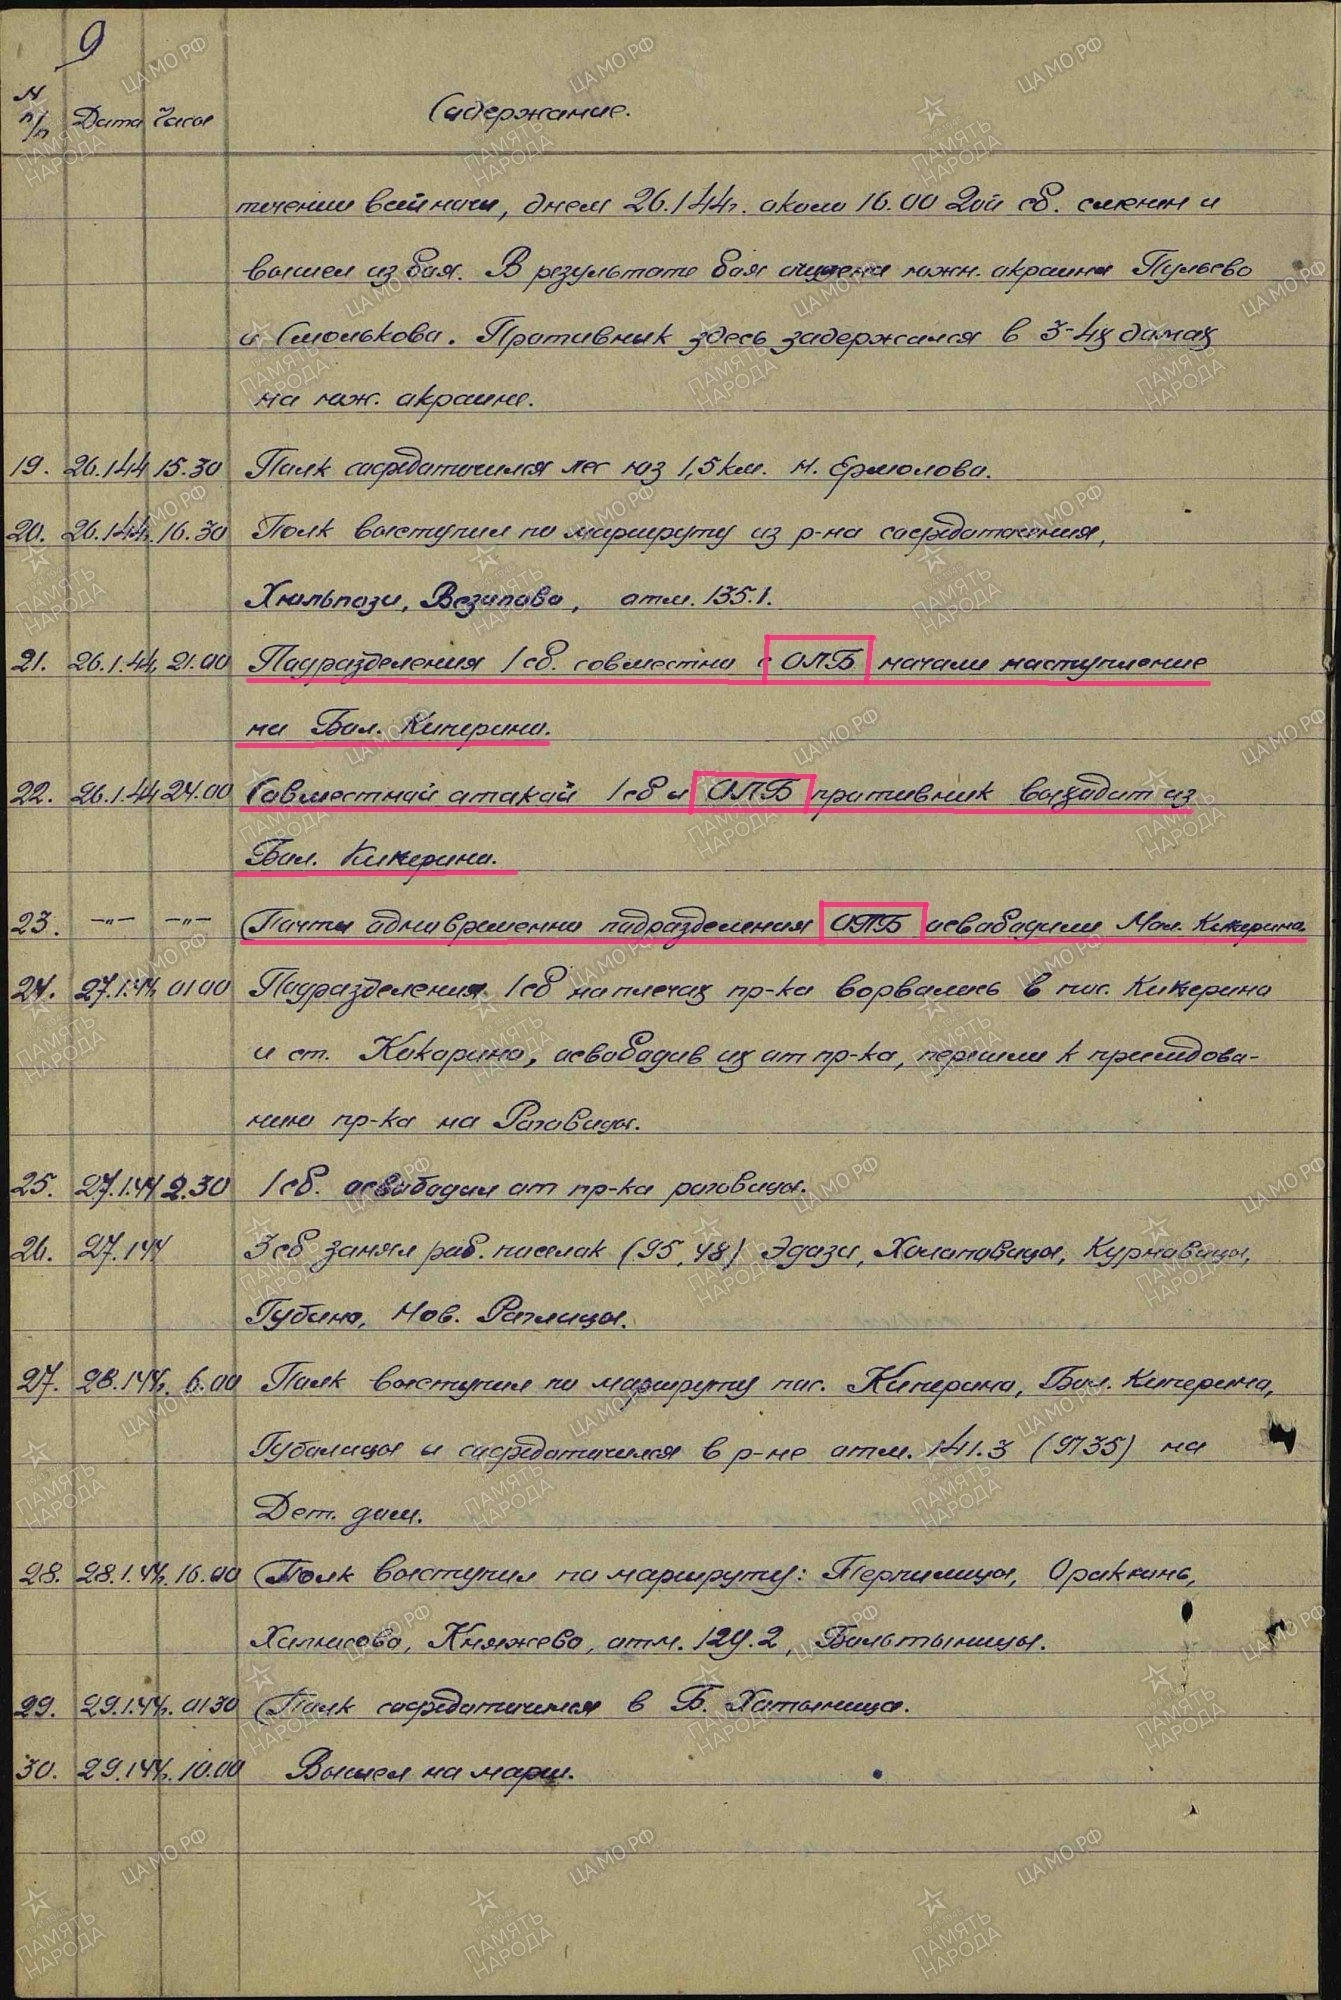 9
N п/п Дата Часы Содержание.
течении всей ночи, днем 26.1.44г. около 16.00 2ой сб. сменен и
вышел из боя. В результате боя очищена южн. окраина Пульево
и Смолькова. Противник здесь задержался в 3-4х домах
на юж. окраине.
19. 26.1.44 15.30 Полк сосредоточился лес юз 1,5 км. Н. Ермолова.
20. 26.1.44г. 16.30 Полк выступил по маршруту из р-на сосредоточения,
Хюльпози, Везипово, отм. 135.1.
21. 26.1.44г. 21.00 Подразделения 1 сб. совместно с ОЛБ начали наступление
на Бол. Кикерино.
22. 26.1.44 24.00 Совместной атакой 1 сб и ОЛБ противник выходит из
Бол. Кикерино.
23. -"- -"- Почти одновременно подразделения ОТБ освободили Мал. Кикерино.
24. 27.1.44г. 01 00 Подразделения 1 сб на плечах пр-ка ворвались в пос. Кикерино
и ст. Кикорино, освободив их от пр-ка, перешли к приследова-
нию пр-ка на Роговицы.
25. 27.1.44 2.30 1 сб. освободил от пр-ка роговицы.
26. 27.1.44 3 сб занял раб. поселок (95,48) Эдази, Холоповицы, Курковицы,
Губино, Нов. Раглицы.
27. 28.1.44г. 6.00 Полк выступил по маршруту пос. Кикерино, Бол. Кикерино,
Губаницы и сосредоточился в р-не отм. 141.3 (9735) на
Дет. дом.
28. 28.1.44г. 16.00 Полк выступил по маршруту: Терпилицы,
Княжево, отм. 129.2,
29. 29.1.44г. 01 30 Полк сосредоточился в Б. Хотыницы.
30. 29.1.44г. 10.00 Вышел на марш.
ПАМЯТЬ НАРОДА
ЦАМО.РФ